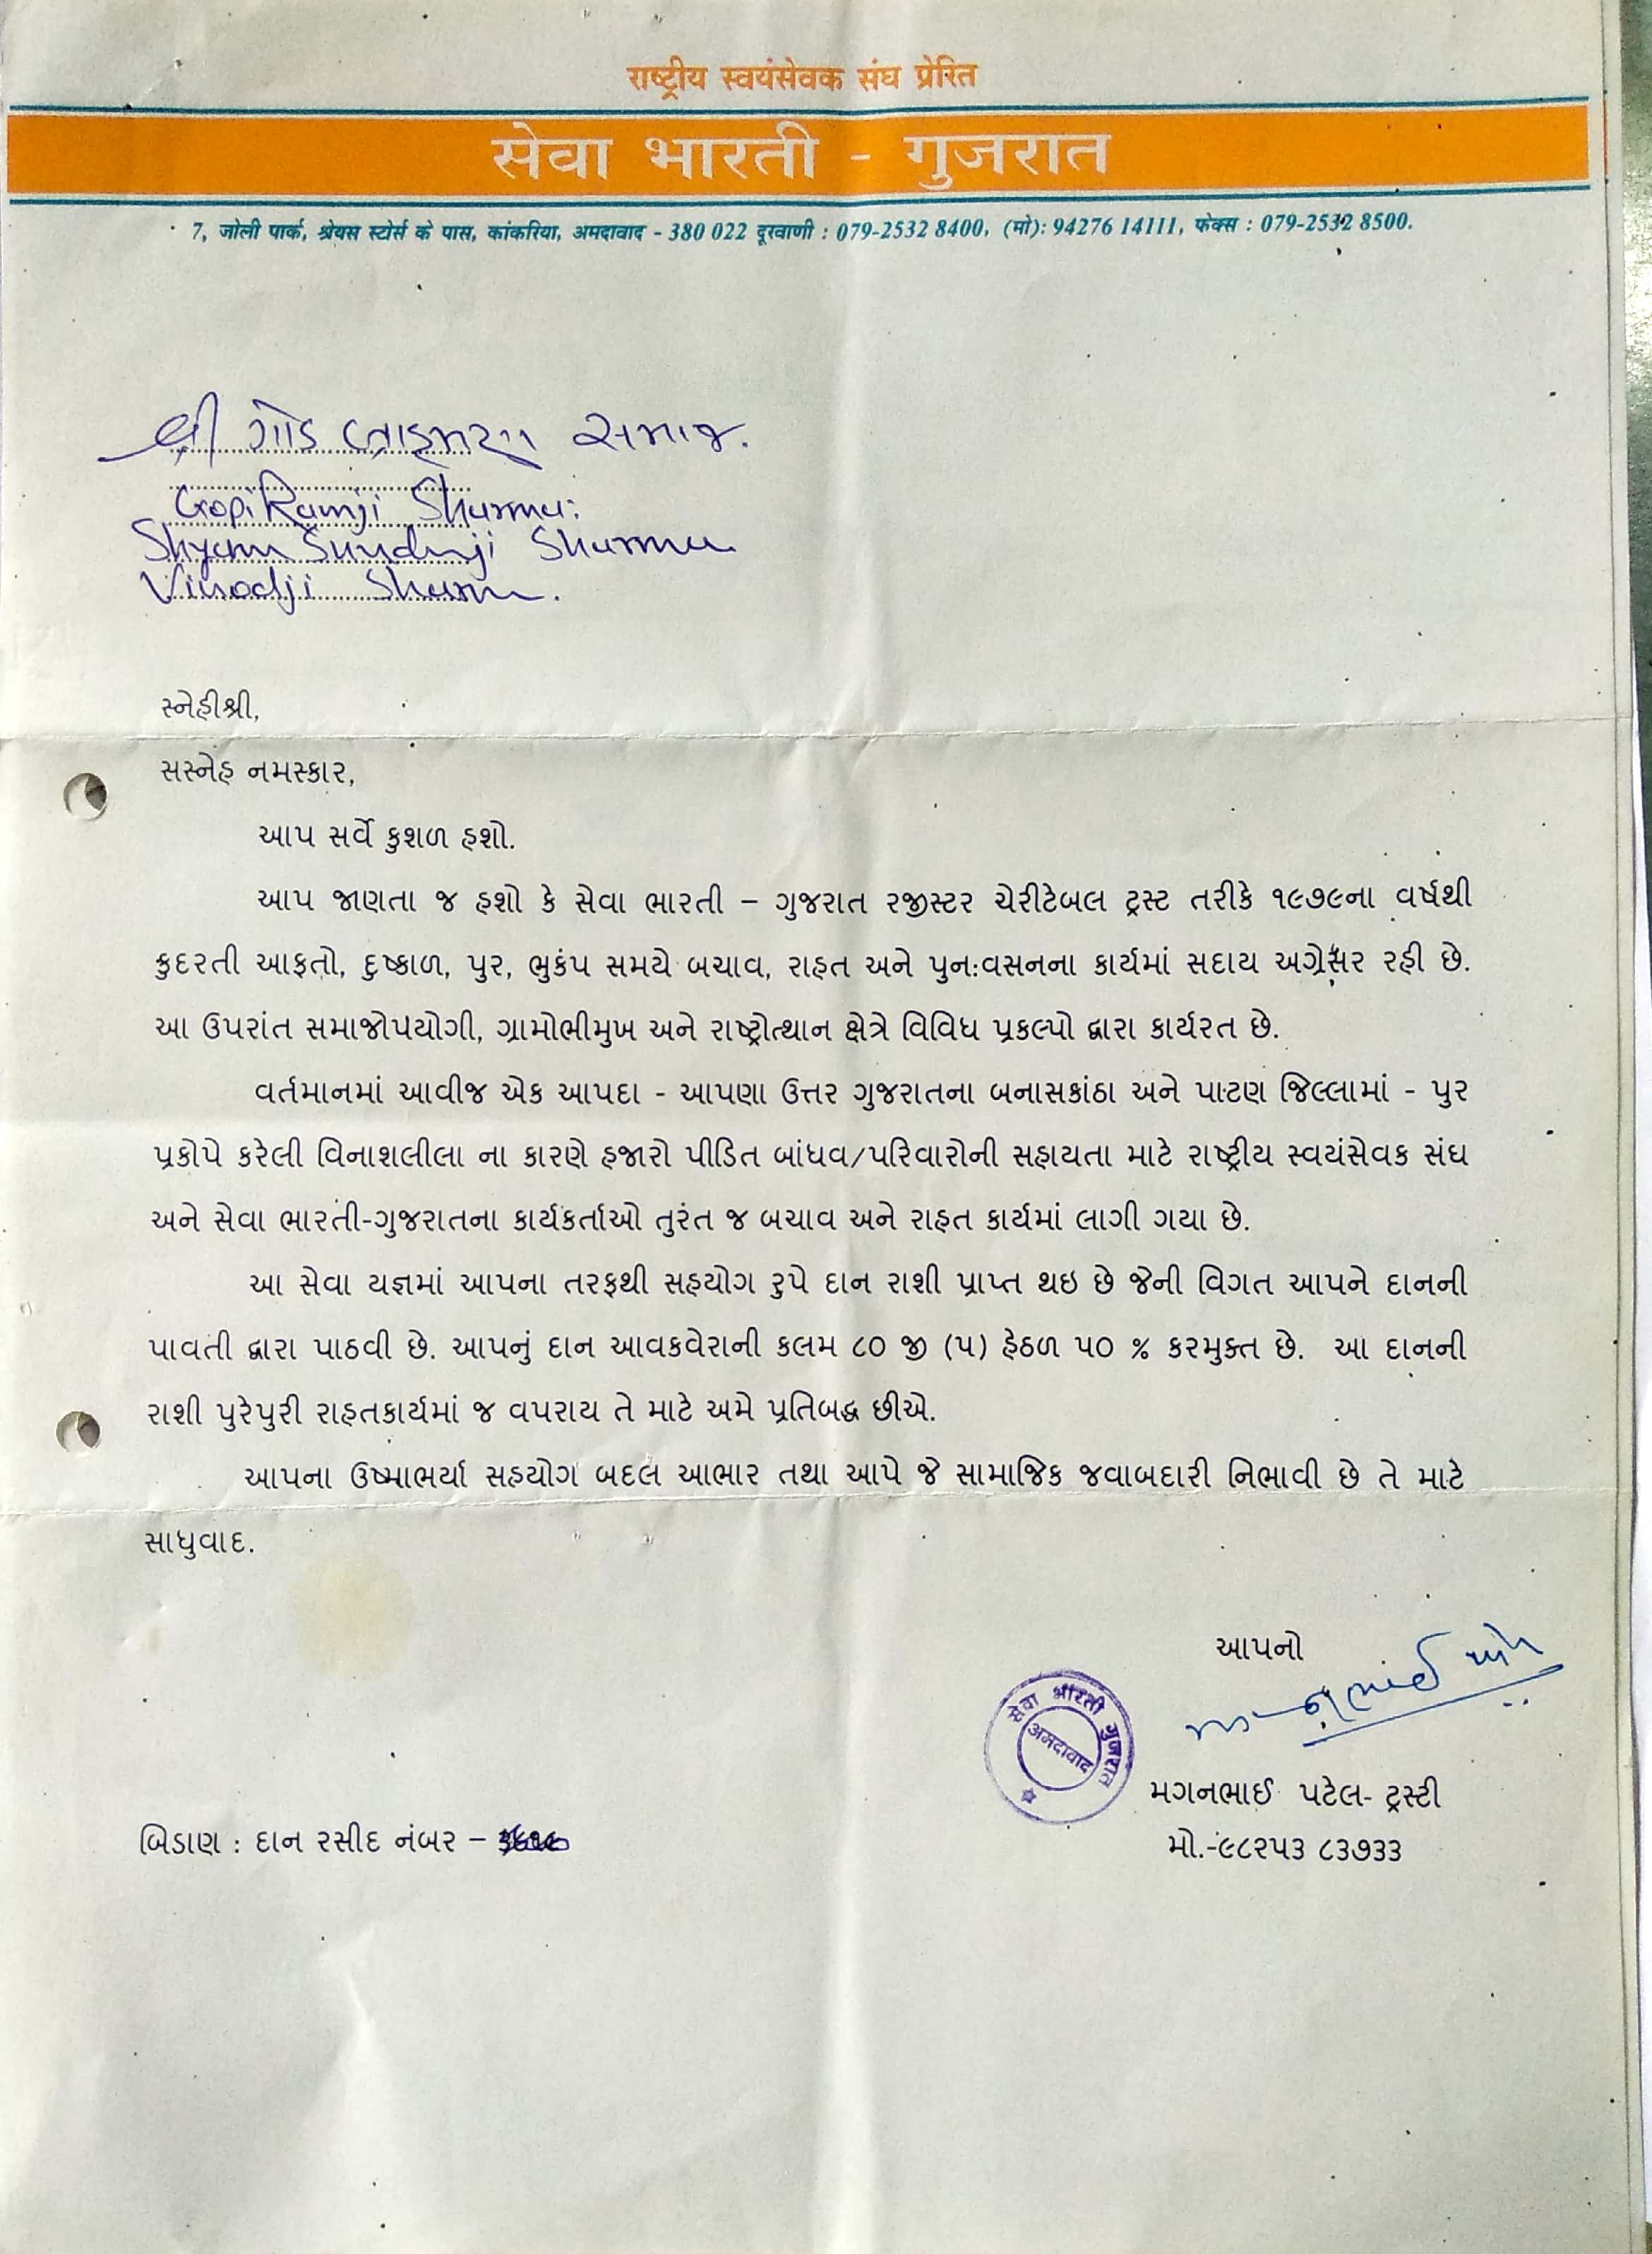 राष्ट्रीय स्वयंसेवक संघ प्रेरित
सेवा भारती - गुजरात
7, जोली पार्क, श्रेयस स्टोर्स के पास, कांकरिया, अमदावाद - 380 022 दूरवाणी : 079-2532 8400, (मो): 94276 14111, फेक्स : 079-2532 8500.
શ્રી ગૌડ બ્રાહ્મણ સમાજ.
GopiRamji Sharma:
Shyam Sundrji Sharma
Vinodji Sharma.
સ્નેહીશ્રી,
સસ્નેહ નમસ્કાર,
આપ સર્વે કુશળ હશો.
આપ જાણતા જ હશો કે સેવા ભારતી – ગુજરાત રજીસ્ટર ચેરીટેબલ ટ્રસ્ટ તરીકે ૧૯૭૯ના વર્ષથી
કુદરતી આફતો, દુષ્કાળ, પુર, ભુકંપ સમયે બચાવ, રાહત અને પુનઃવસનના કાર્યમાં સદાય અગ્રેસર રહી છે.
આ ઉપરાંત સમાજોપયોગી, ગ્રામોભીમુખ અને રાષ્ટ્રોત્થાન ક્ષેત્રે વિવિધ પ્રકલ્પો દ્વારા કાર્યરત છે.
વર્તમાનમાં આવીજ એક આપદા - આપણા ઉત્તર ગુજરાતના બનાસકાંઠા અને પાટણ જિલ્લામાં - પુર
પ્રકોપે કરેલી વિનાશલીલા ના કારણે હજારો પીડિત બાંધવ/પરિવારોની સહાયતા માટે રાષ્ટ્રીય સ્વયંસેવક સંઘ
અને સેવા ભારતી-ગુજરાતના કાર્યકર્તાઓ તુરંત જ બચાવ અને રાહત કાર્યમાં લાગી ગયા છે.
આ સેવા યજ્ઞમાં આપના તરફથી સહયોગ રુપે દાન રાશી પ્રાપ્ત થઇ છે જેની વિગત આપને દાનની
પાવતી દ્વારા પાઠવી છે. આપનું દાન આવકવેરાની કલમ ૮૦ જી (૫) હેઠળ ૫૦ % કરમુક્ત છે. આ દાનની
રાશી પુરેપુરી રાહતકાર્યમાં જ વપરાય તે માટે અમે પ્રતિબદ્ધ છીએ.
આપના ઉષ્માભર્યા સહયોગ બદલ આભાર તથા આપે જે સામાજિક જવાબદારી નિભાવી છે તે માટે
સાધુવાદ.
આપનો
સેવા ભારતી ગુજરાત
અમદાવાદ
મગનભાઈ પટેલ- ટ્રસ્ટી
મો.-૯૮૨૫૩ ૮૩૭૩૩
બિડાણ : દાન રસીદ નંબર –